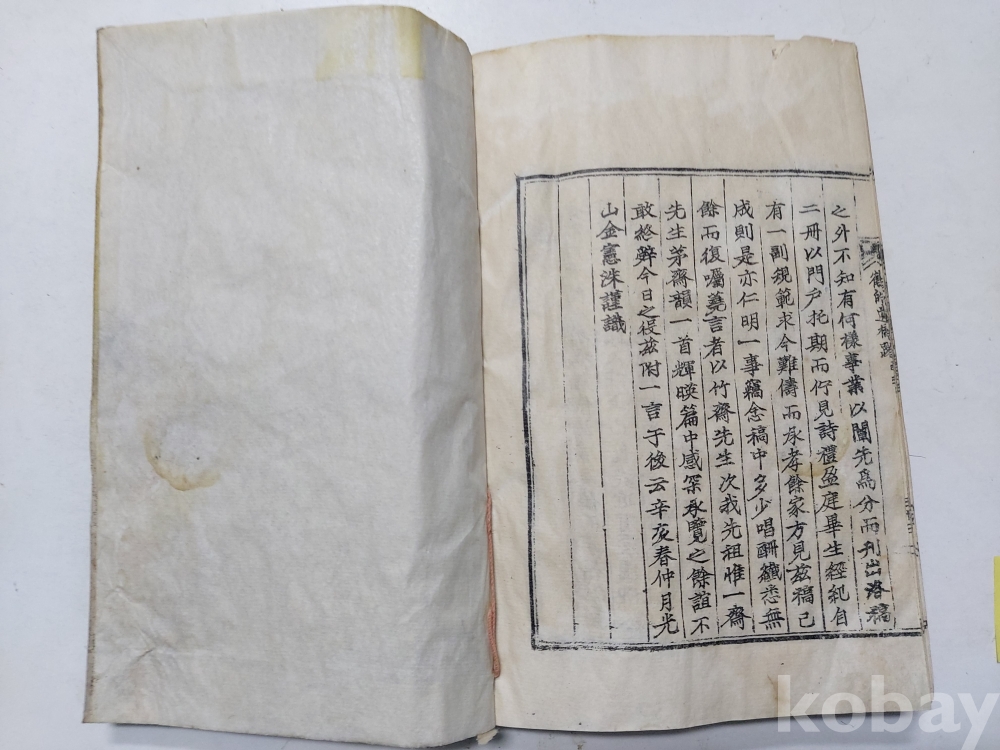 之外不知有何樣事業以闡先爲分而刋出洛稿
二冊以門戶托期而佇見詩禮盈庭畢生經紀自
有一副規範求今難儔而承孝餘家方見茲稿已
成則是亦仁明一事竊念稿中多少唱酬纖悉無
餘而復囑蕘言者以竹齋先生次我先祖惟一齋
先生茅齋韻一首輝暎篇中感深承覽之餘誼不
敢終辭今日之役茲附一言于後云辛亥春仲月光
山金憲洙謹識
kobay